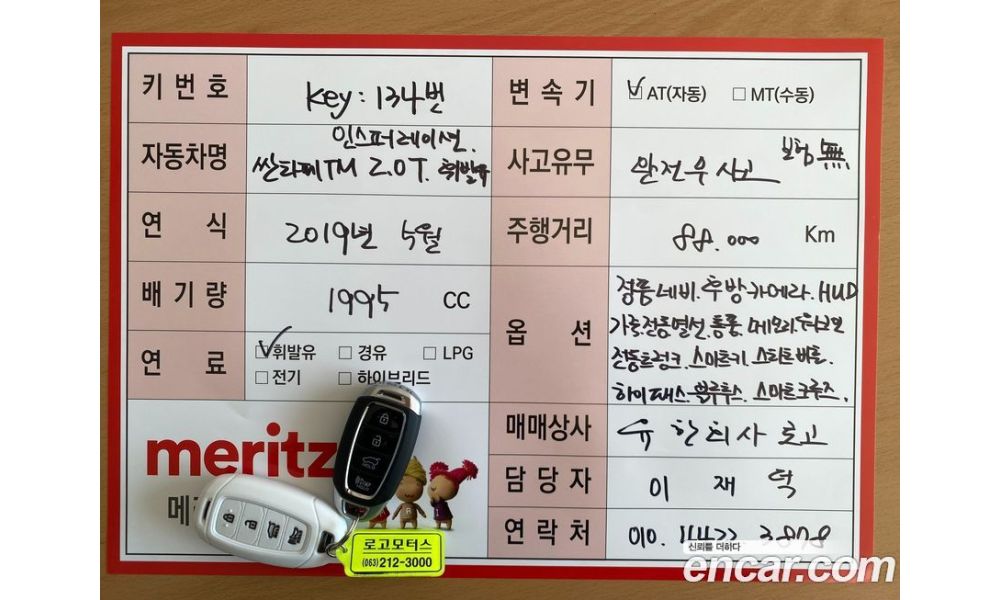 키 번 호
Key : 134번
변 속 기
AT(자동) MT(수동)
자동차명
인스퍼레이션.
싼타페TM 2.0T. 휘발유
사고유무
완전무사고
보험 無
연 식
2019년 5월
주행거리
88.000 Km
배 기 량
1995 CC
옵 션
정품네비.후방카메라.HUD
가죽전동열선.통풍.메모리
전동트렁크.스마트키.스타트버튼.
하이패스.블루투스.스마트크루즈.
연 료
휘발유 경유 LPG
전기 하이브리드
매매상사
유한회사 로고
meritz
메
담 당 자
이 재 덕
연 락 처
010. 3808
로고모터스
(063)212-3000
신뢰를 더하다
encar.com